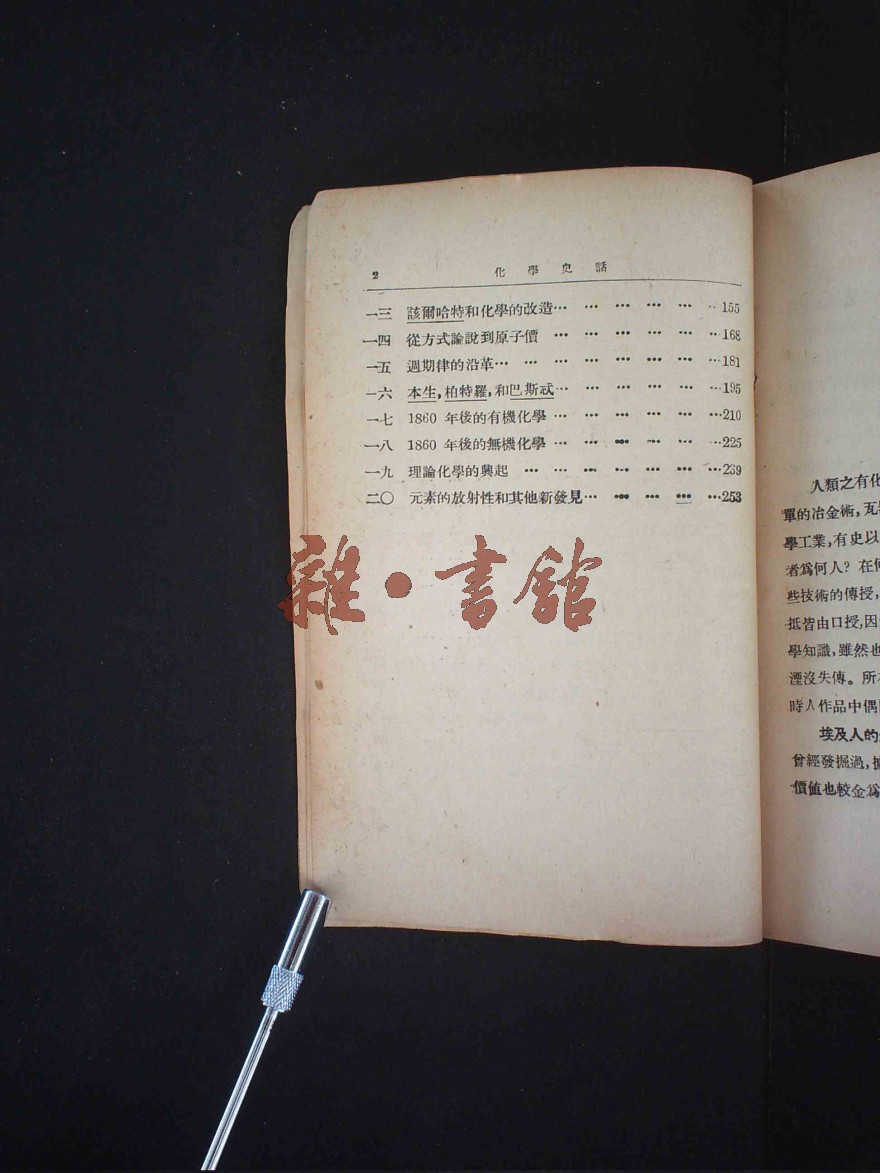 2 化學史話
一三 該爾哈特和化學的改造… … … … … …155
一四 從方式論說到原子價 … … … … … …168
一五 週期律的沿革… … … … … … … …181
一六 本生,柏特羅,和巴斯忒… … … … … …195
一七 1860 年後的有機化學 … … … … … …210
一八 1860 年後的無機化學 … … … … … …225
一九 理論化學的興起 … … … … … … …239
二〇 元素的放射性和其他新發見… … … … …253
雜·書館
人類之有化
單的冶金術,瓦
學工業,有史以
者爲何人?在何
些技術的傳授,
抵皆由口授,因
學知識,雖然也
湮沒失傳。所
時人作品中偶
埃及人的
曾經發掘過,據
價值也較金爲